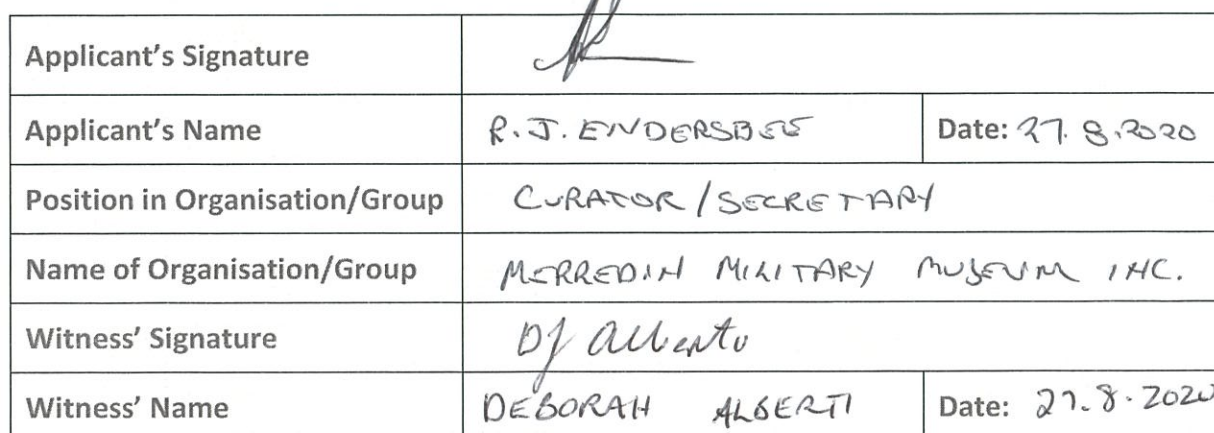 Applicant's Signature
Applicant's Name R. J. ENDERSBEE Date: 27. 8. 2020
Position in Organisation/Group CURATOR / SECRETARY
Name of Organisation/Group MERREDIN MILITARY MUSEUM INC.
Witness' Signature DJ Alberti
Witness' Name DEBORAH ALBERTI Date: 27. 8. 2020